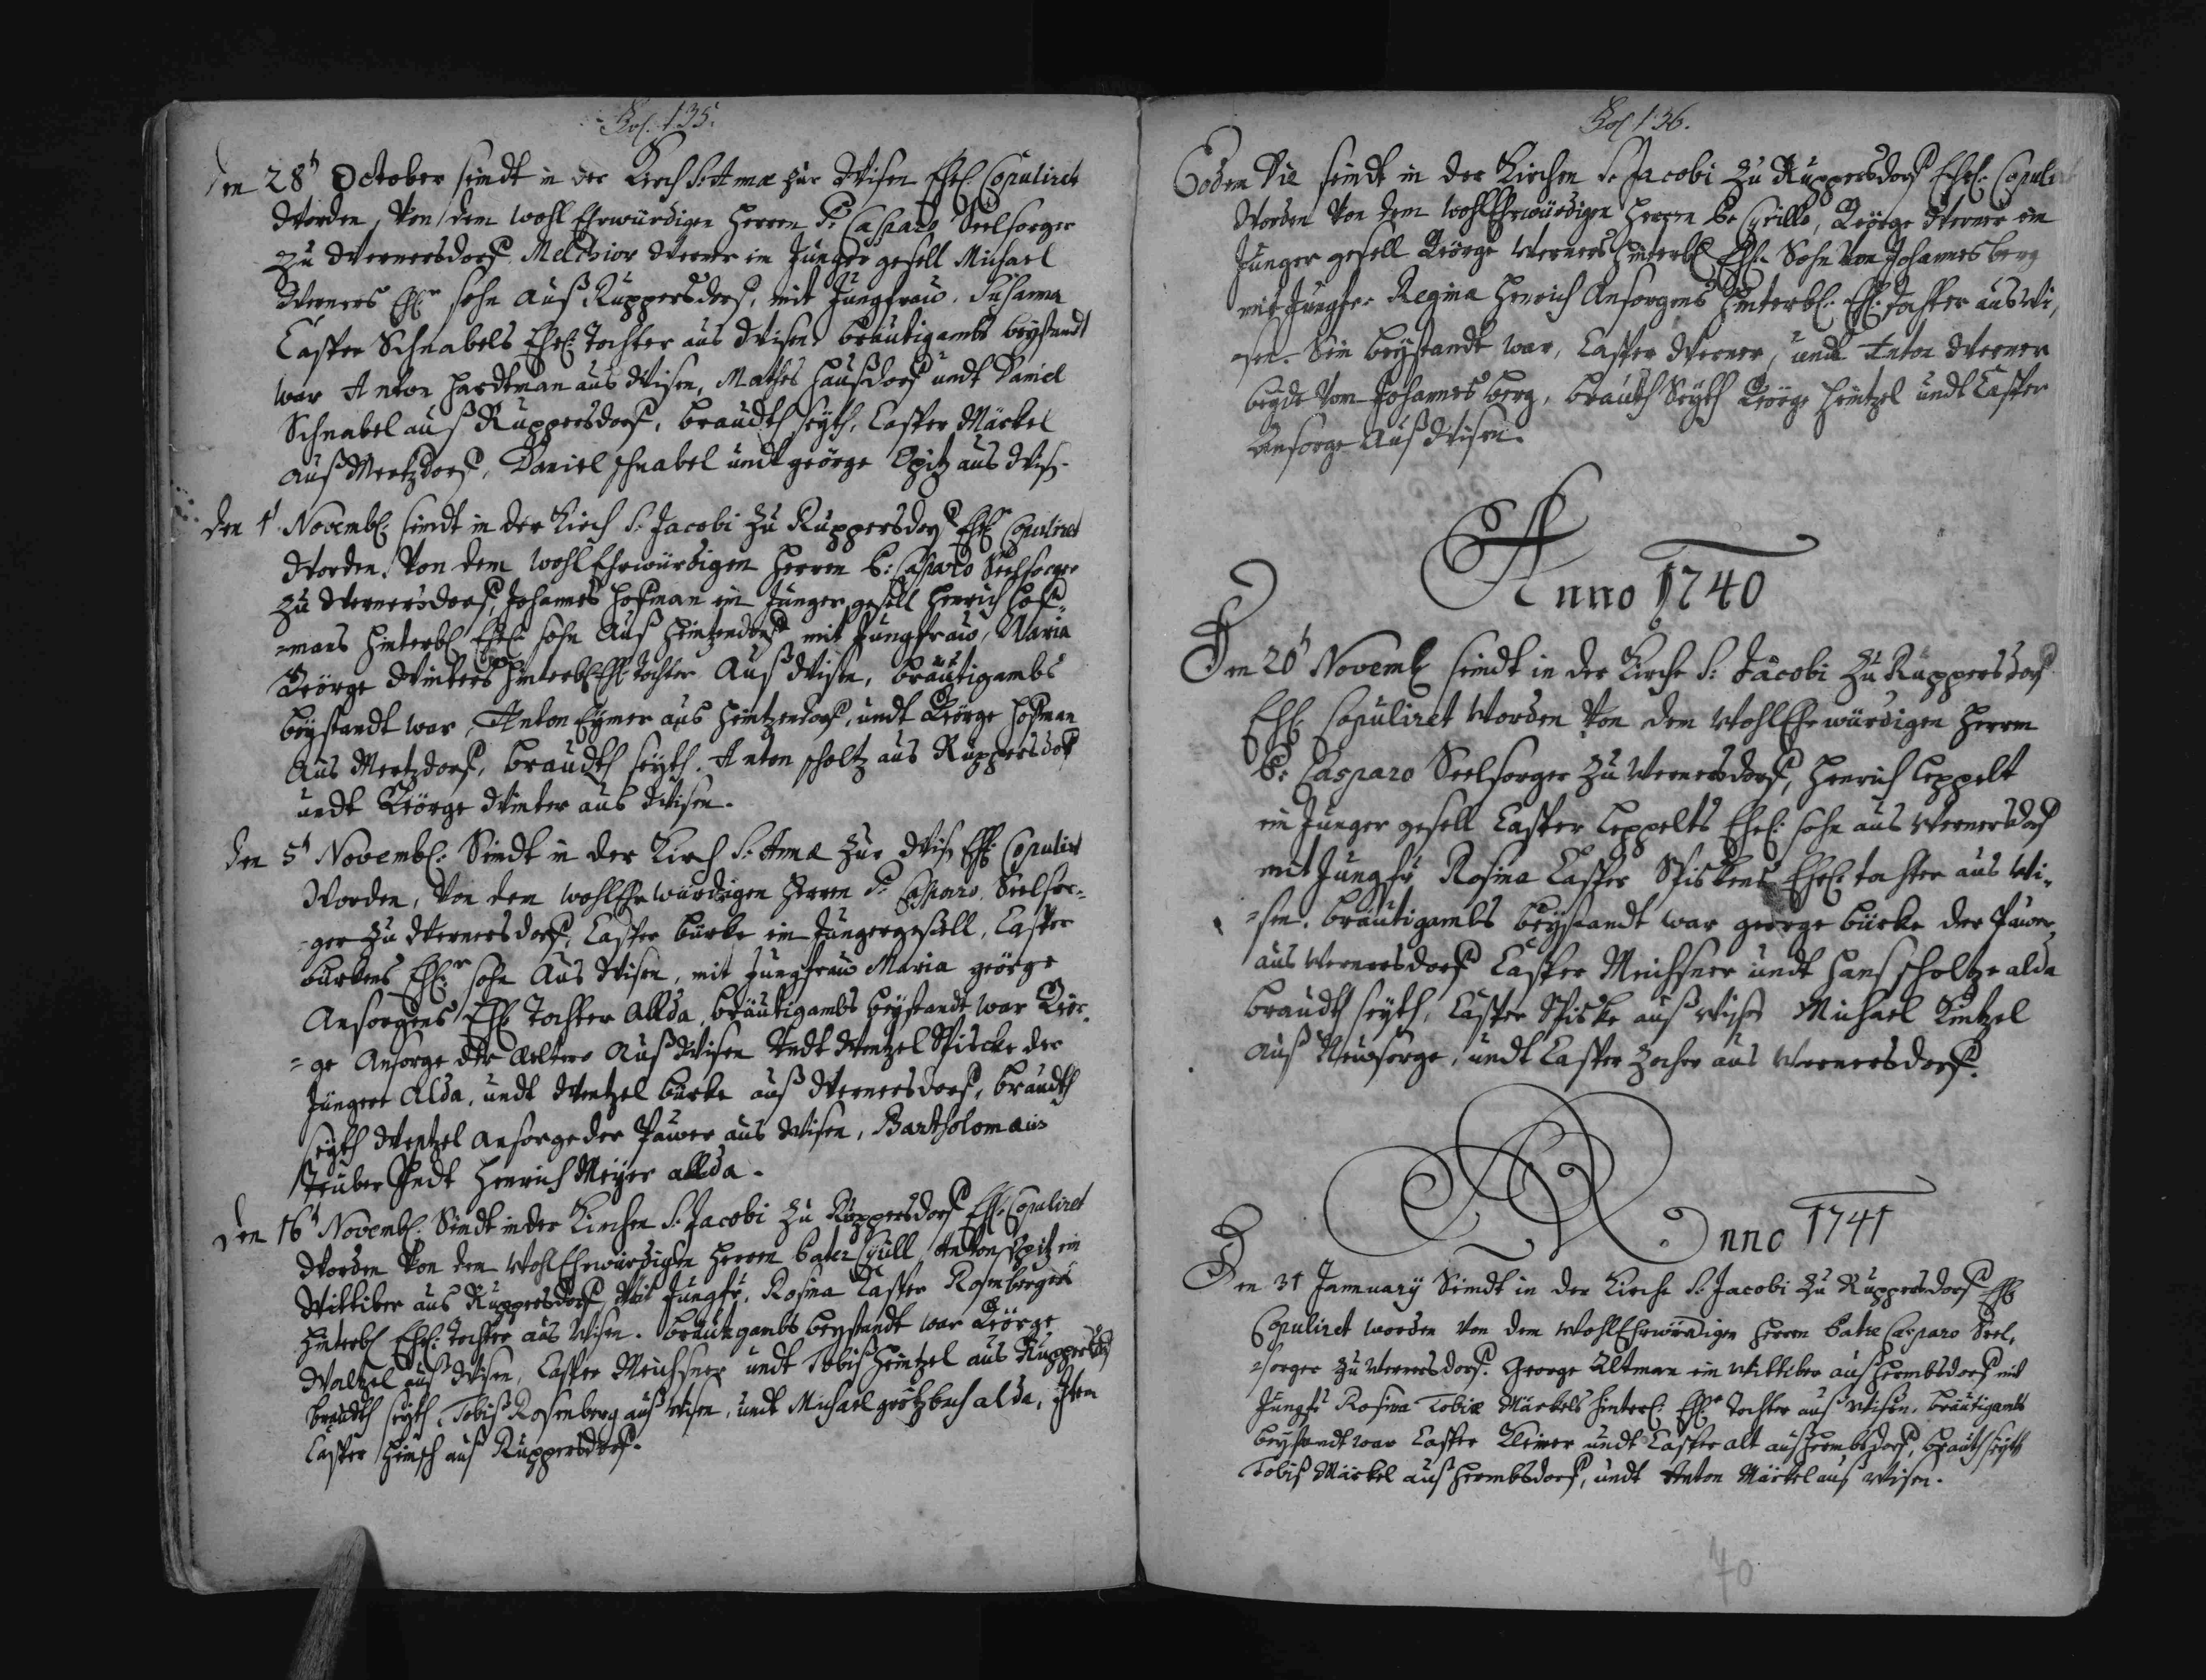 Fol. 135.
Den 28t October sindt in der Kirch S: Annæ zur Wisen Ehel: Copuliret
Worden, Von dem Wohl Ehrwürdigen Herren P: Casparo Seelsorger
zu Wernersdorf, Melchior Werner ein Junger gesell Michael
Werners Ehlr sohn auß Ruppersdorf, mit Jungfraw Susanna
Casper Schnabels Ehel: Tochter aus Wisen, breütigambs beystandt
war Anton Hardtman aus Wisen, Mathes Haußdorf undt Daniel
Schnabel auß Ruppersdorf, braudth seyth, Casper Märckel
auß Mertzdorf, Daniel schnabel undt george Opitz aus Wis:
Den 1t Novembl: sindt in der Kirch S: Jacobi zu Ruppersdorf Ehel: Copuliret
Worden, Von dem Wohl Ehrwürdigen Herren P: Casparo Seelsorger
zu Wernersdorf, Johannes Hofman ein Junger gesell Henrich Hof=
=mans Hinterbl: Ehel: sohn auß Heintzendorf mit Jungfraw, Maria
George Winters Hinterbl: Ehl: tochter auß Wisen, breütigambs
beystandt war, Anton Eymer aus Heintzendorf, undt George Hofman
aus Mertzdorf, braudth seyth, Anton scholtz aus Ruppersdorf
undt George Winter aus Wisen.
Den 5t Novembl: Sindt in der Kirch S: Annæ zur Wis: Ehl: Copulirt
Worden, Von dem Wohl Ehrwürdigen Herren P: Casparo Seelsor=
=ger zu Wernersdorf, Casper bürke ein Jungergesell, Casper
bürkens Ehlr sohn Aus Wisen, mit Jungfraw Maria george
Ansorgens Ehl: Tochter allda, breütigambs beystandt war Geor=
=ge Ansorge der Aeltere auß Wisen Undt Wentzel Spiscke der
Jüngere alda, undt Wentzel bürke auß Wernersdorf, braudth
seyth Wentzel Ansorge der Pauer aus Wisen, Bartholomæus
Teuber Undt Henrich Meyer allda.
Den 16t Novembl: Sindt in der Kirchen S: Jacobi zu Ruppersdorf Ehl: Copuliret
Worden Von dem Wohl Ehrwürdigen Herren Pater Cyrill, Anton Opitz ein
Wittiber aus Ruppersdorf, Mit Jungfr: Rosina Casper Rosenbergers
Hinterbl: Ehel: Tochter aus Wisen. breütigambs beystandt war George
Waltzel auß Wisen, Casper Meichsner undt Tobis Heintzel aus Ruppersdorf
braudth seyth, Tobis Rosenberg auß Wisen, undt Michael alda, Item
Casper Hirsch auß Ruppersdorf.
Fol 136.
Eodem Die sindt in der Kirchen S: Jacobi zu Ruppersdorf Ehel: Copuliret
Worden Von dem Wohl Ehrwürdigen Herren P: Cyrillo, George Werner ein
Junger gesell George Werners Hinterbl: Ehl: Sohn Von Johannesberg
mit Jungfer Regina Henrich Ansorgens Hinterbl: Ehl: tochter aus Wi,
=sen. Sein beystandt war, Casper Werner, undt Anton Werner
beyde Vom Johannesberg, brauth Seyth George Heintzel undt Casper
Ansorge auß Wisen.
Anno 1740
Den 20t Novembl sindt in der Kirche S: Jacobi zu Ruppersdorf
Ehl: Copuliret Worden Von dem Wohl Ehrwürdigen Herren
P: Casparo Seelsorger zu Wernersdorf, Henrich Leppelt
ein Junger gesell Casper Leppelts Ehel: sohn aus Wernersdorf
mit Jungfr Rosina Casper Spiskens Ehel: tochter aus Wi=
=sen. breütigambs beystandt war george bürke der Pauer,
aus Wernersdorf Casper Meichsner undt Hans scholtze alda
braudth seyth, Casper Spiske auß Wisen Michael Kintzel
auß Neusorge, undt Casper Zocher aus Wernersdorf.
Anno 1741
Den 31 January Sindt in der Kirche S: Jacobi zu Ruppersdorf Ehl:
Copuliret worden Von dem Wohl Ehrwürdigen Herren Patre Casparo Seel,
=sorger zu Wernersdorf. George Altman ein Wittiber auß Hermbsdorf mit
Jungfr Rosina Tobiæ Märkels Hinterl: Ehlr Tochter auß Wisen, breütigambs
beystandt war Casper Kleiner undt Casper alt auß Hermbsdorf, brauth seyth
Tobis Märkel auß Hermbsdorf, undt Anton Märkel auß Wisen.
70